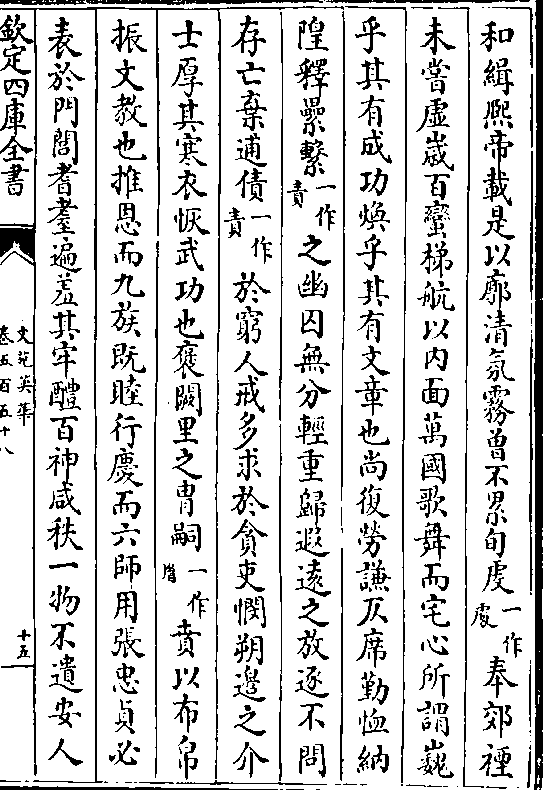 和緝熙帝載是以廓清氛霧曽不累旬虔一作處奉郊禋
未嘗虚歳百蠻梯航以内面萬國歌舞而宅心所謂巍
乎其有成功煥乎其有文章也尚復勞謙仄席勤恤納
隍釋纍繫一作責之幽囚無分輕重歸遐逺之放逐不問
存亡棄逋債一作責於窮人戒多求於貪吏憫朔邊之介
士厚其寒衣恢武功也褒闕里之胄嗣一作賁以布帛
振文教也推恩而九族既睦行慶而六師用張忠貞必
表於門閭耆耋遍羞其牢醴百神咸秩一物不遺安人
欽定四庫全書
文苑英華
卷五百五十八
十五